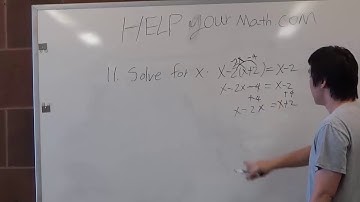 HELP your Math.com
-2x -4
11. Solve for x. x-2(x+2)=x-2
x-2x-4 = x-2
+4 +4
x-2x = x+2